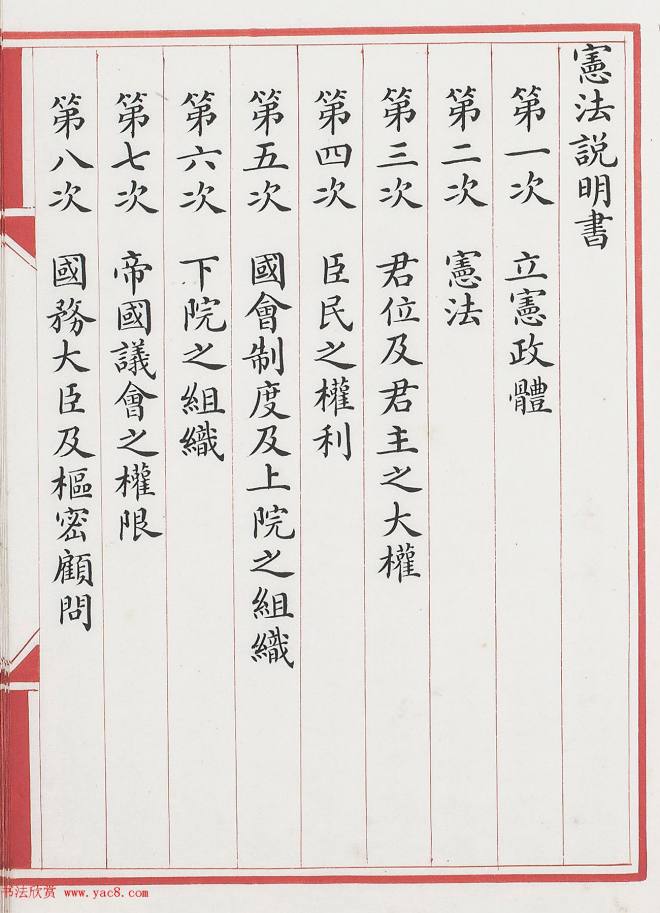 憲法説明書
第一次 立憲政體
第二次 憲法
第三次 君位及君主之大權
第四次 臣民之權利
第五次 國會制度及上院之組織
第六次 下院之組織
第七次 帝國議會之權限
第八次 國務大臣及樞密顧問
书法欣赏 www.yac8.com